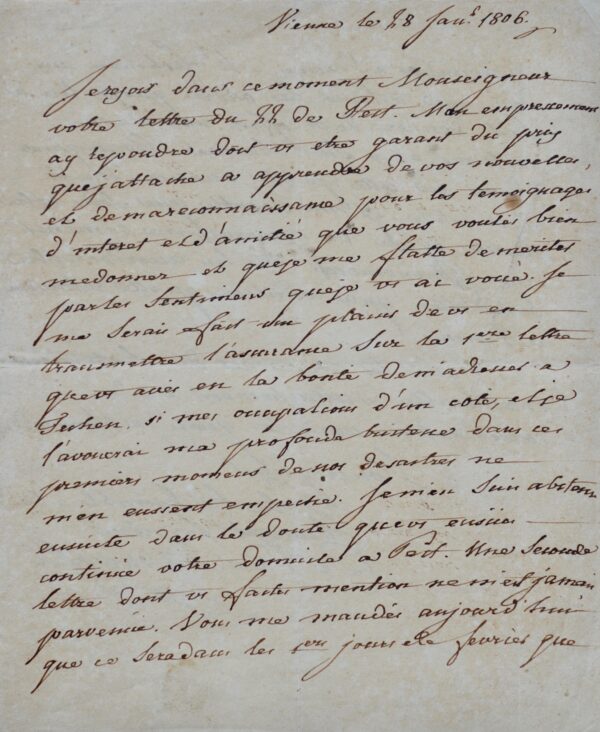 Vienne le 28 Janr 1806.
Je reçois dans ce moment Monseigneur
votre lettre du 22 de Pest. Mon empressement
a y repondre doit vs etre garant du prix
que j'attache a apprendre de vos nouvelles,
et de ma reconnaissance pour les temoignages
d'interet et d'amitié que vous voulés bien
me donner et que je me flatte de meriter
par les sentimens que je vs ai voué. Je
me serais fait un plaisir de vs en
transmettre l'assurance sur la 1ere lettre
que vs aviés eu la bonté de m'adresser a
Teschen, si mes occupations d'un coté, et je
l'avouerai ma profonde tristesse dans ces
premiers momens de nos desastres ne
m'en eussent empeché. Je m'en suis abstenu
ensuite dans le doute que vs eussiés
continué votre domicile a Pest. Une seconde
lettre dont vs faites mention ne m'est jamais
parvenue. Vous me mandés aujourd'hui
que ce sera dans les 1ers jours de fevrier que